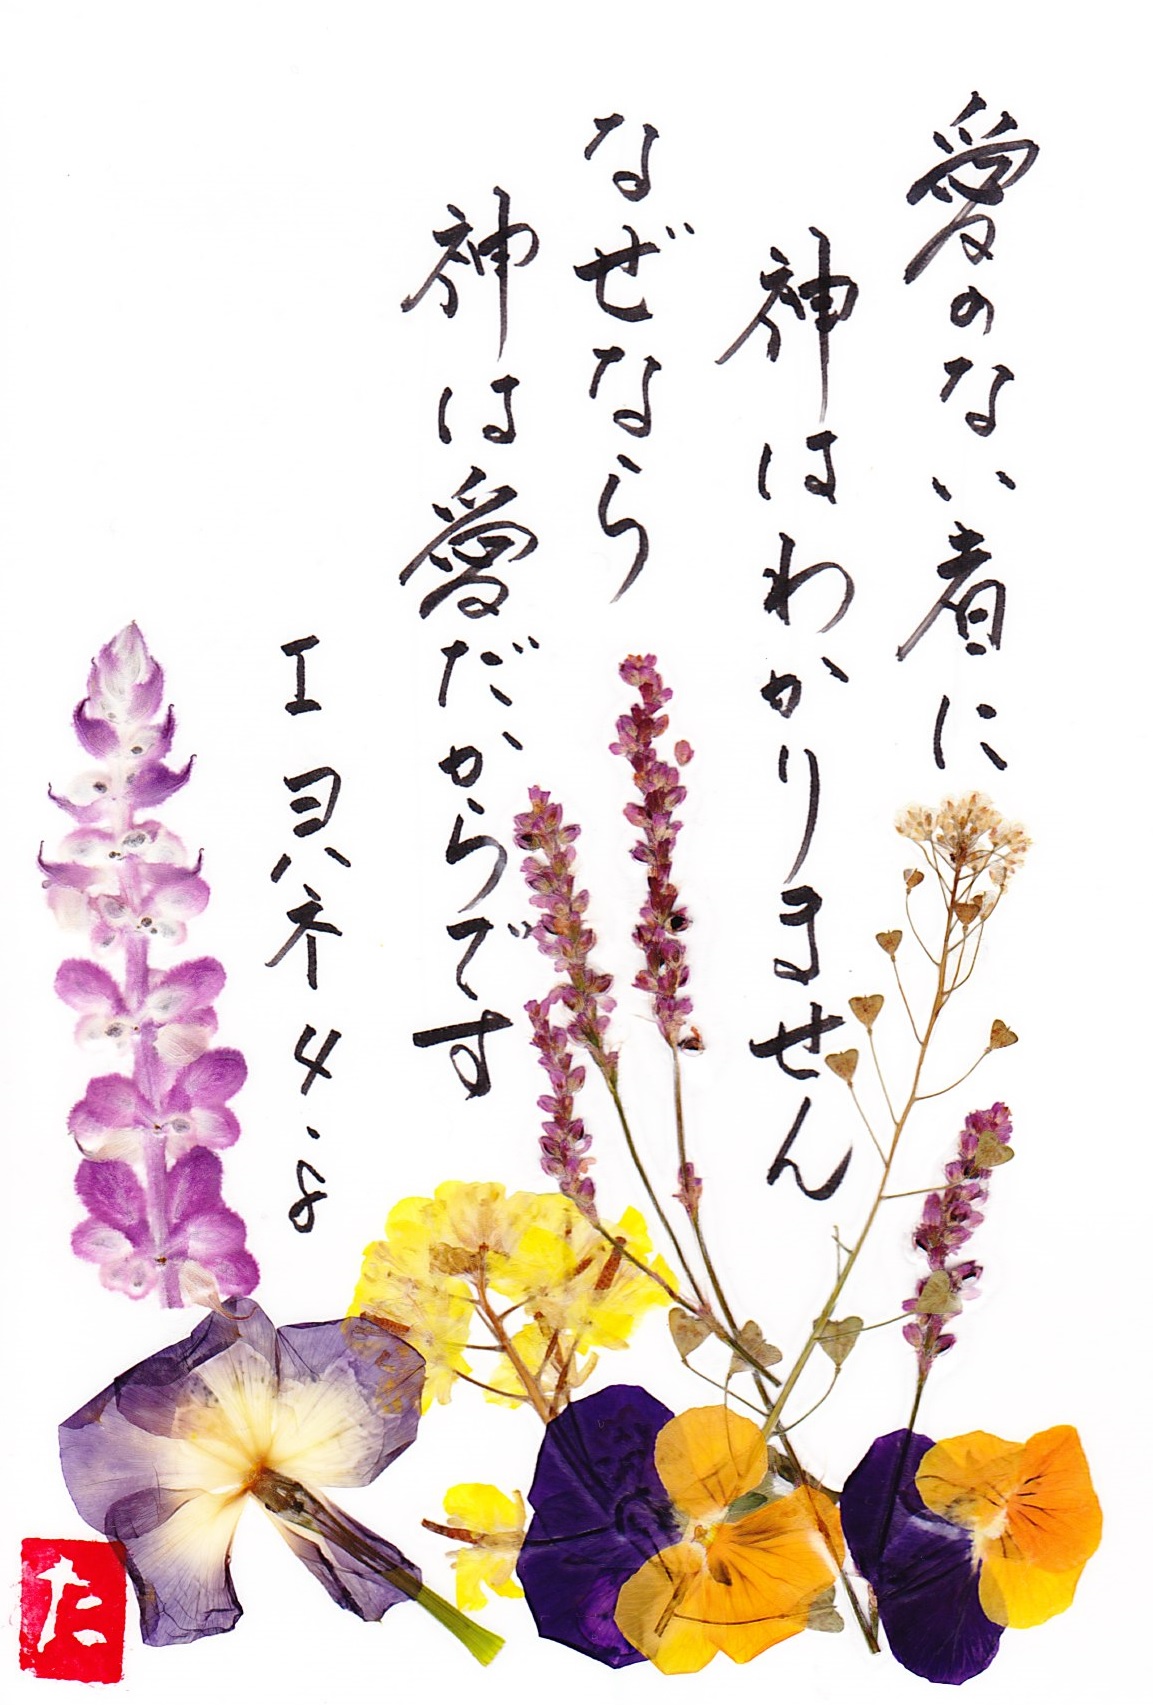 愛のない者に
神はわかりません
なぜなら
神は愛だからです
Iヨハネ4.8
た